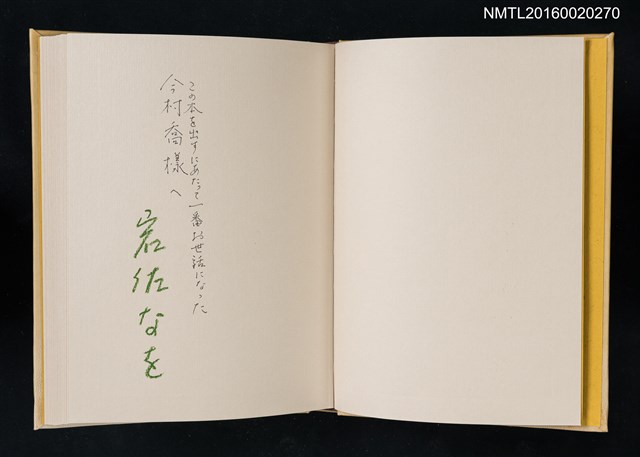 NMTL20160020270
この本を出すにあたって一番お世話になった
今村喬様へ
岩佐なを